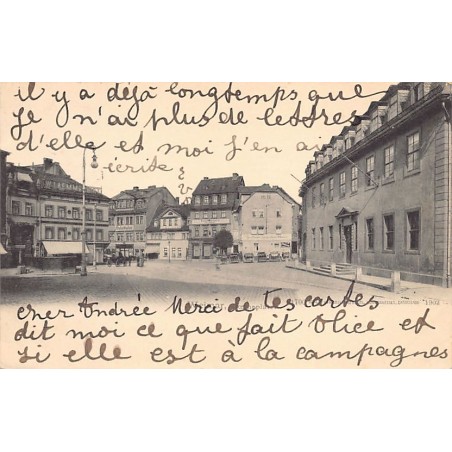 il y a déjà longtemps que
je n'ai plus de lettres
d'elle et moi j'en ai
écrite
?
cher Andrée Merci de tes cartes
dit moi ce que fait Olice et
si elle est à la campagne